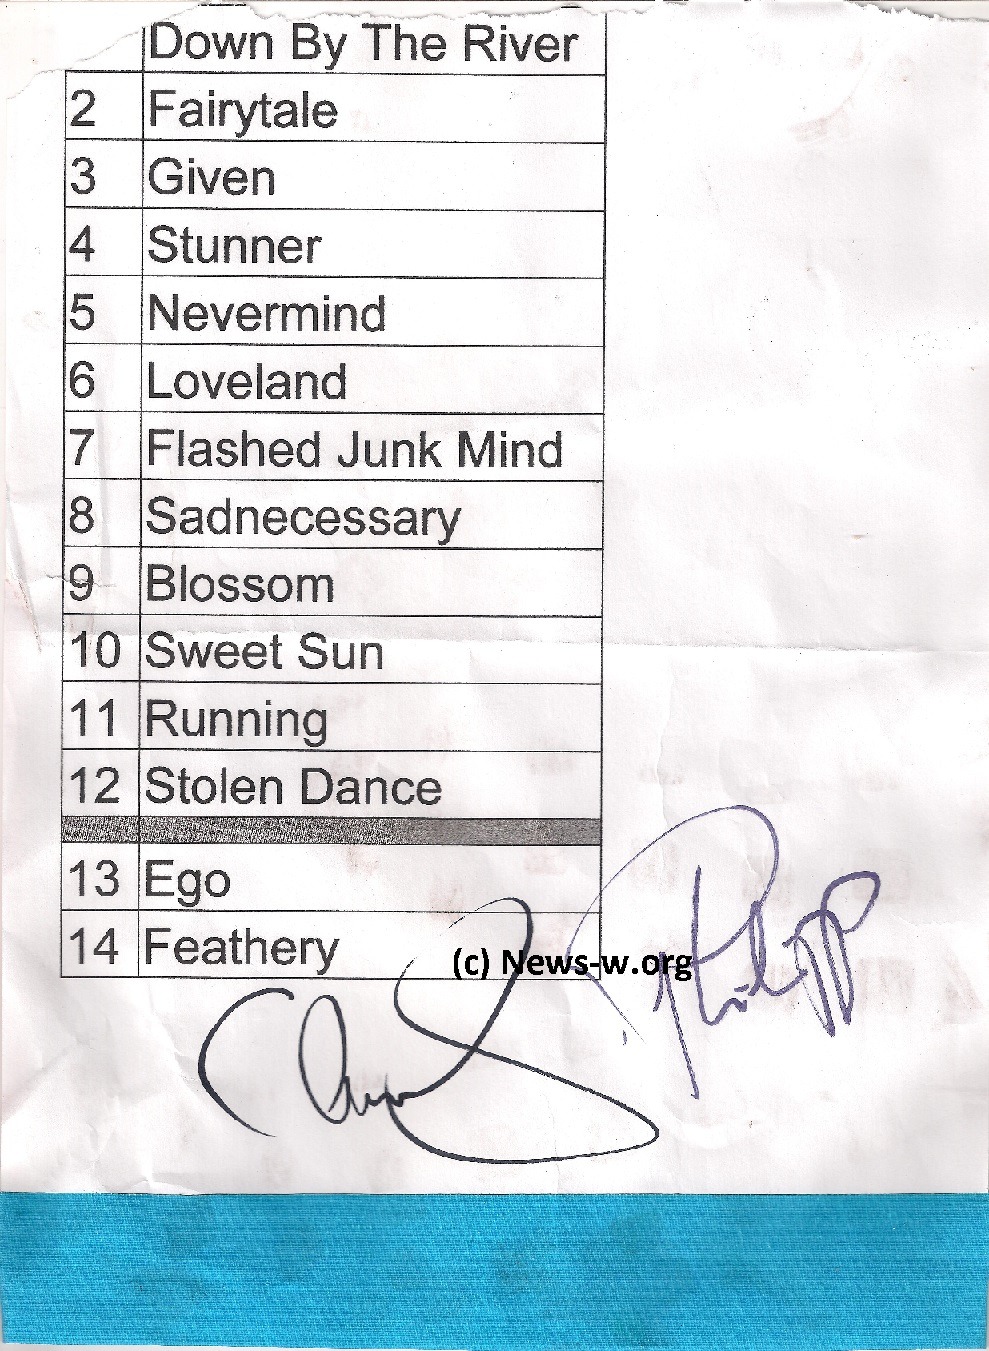 Down By The River
2 Fairytale
3 Given
4 Stunner
5 Nevermind
6 Loveland
7 Flashed Junk Mind
8 Sadnecessary
9 Blossom
10 Sweet Sun
11 Running
12 Stolen Dance
13 Ego
14 Feathery
(c) News-w.org
Philipp